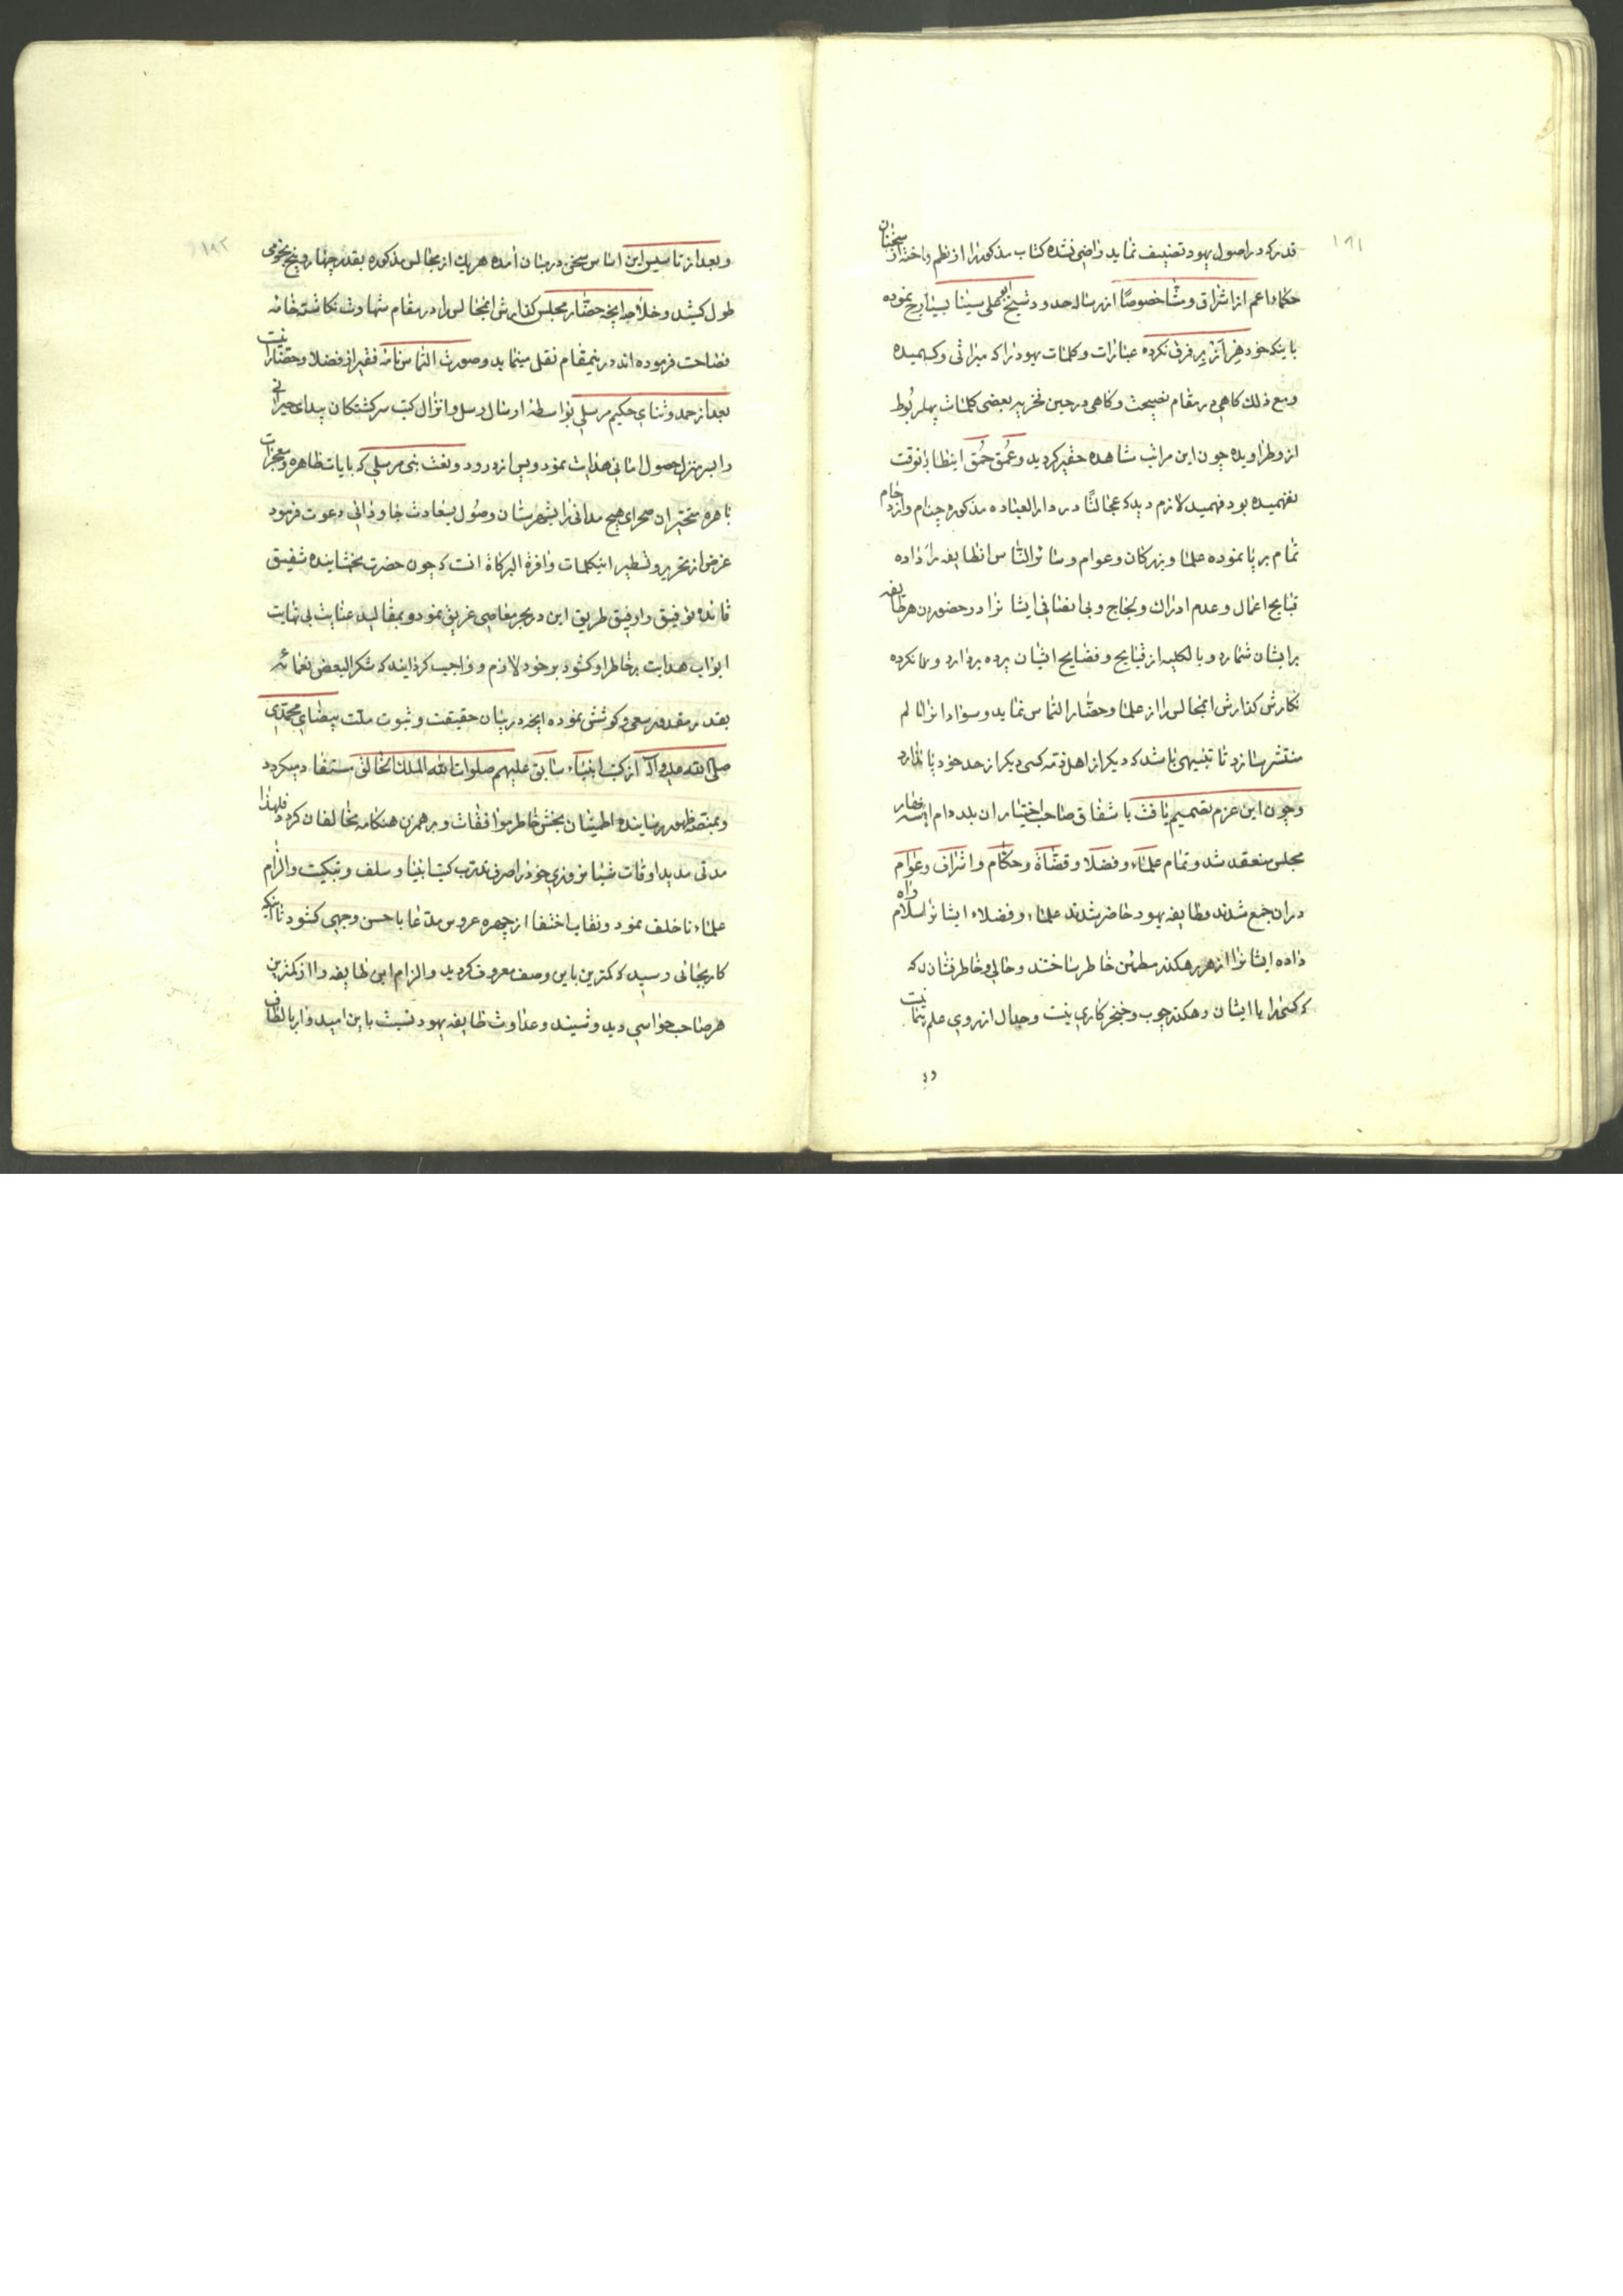 ۱۹۱
قدر که در اصول یهود تصنیف نماید راضی نشده کتاب مذکور را از نظم انداخته از سخنان
حکما اعم از اشراق و مشا خصوصاً از رساله حدود شیخ ابو علی سینا بسیار درج نموده
باینکه خود هِر از بِر فرق نکرده عبارات و کلمات یهود را که میراثی و کسبیده
ومع ذلک کاهی در مقام نصیحت و کاهی در حین تحریر بعضی کلمات بیربوط
از و طراویده چون این مراتب مشاهده حقیر کردید و عُمق حُمق اینطایفه را انوقت
نفهمیده بود فهمید لازم دید که عجالتًا در دار العباده مذکوره چنام و ازدحام
تمام برپا نموده علما و بزرکان و عوام و سائر الناس انطایفه را راه داده
قبایح اعمال و عدم ادراک و لجاج و بی انصافی ایشانرا در حضور هر طایفه
بر ایشان شمارد و بالکلیه از قبایح و فضایح ایشان پرده بردارد و رها نکرده
نکارش کذارش انمجالس را از علما و حضار التماس نماید و سواد انرا
منتشر سازد تا تنبیهی باشد که دیکر از اهل ذمه کسی دیکر از حد خود پا نکذارد
و چون این عزم تصمیم یافت باشفاق صاحب اختیار ان بلده دام
مجلس منعقد شد و تمام علماء و فضلا و قضاة و حکام و اشراف و عوام
دران جمع شدند و طایفه یهود حاضر شدند علماء و فضلاء ایشانرا سلام داده
داده ایشانرا از هر رهکذر مطمئن خاطر ساختند و حالی و خاطر نشان که
که کسیرا با ایشان رهکذر چوب و خنجر کاری نیست و جدال از روی علم
۱۹۲
و بعد از تاسیس این اساس سخن در میان امده هر یک از مجالس مذکوره بقدر چهار و پنج نجومی
طول کشید و خلاصه انچه حضار مجلس کذارش انمجالس را در مقام شهادت نکاشته خامه
فصاحت فرموده اند درینمقام نقل مینماید و صورت التماس نامه فقیر از فضلا و حضار اینست
بعد از حمد و ثنای حکیم مرسلی بواسطه ارسال رسل و انزال کتب سرکشتکان بیدای حیرانی
را بسر منزل حصول امانی هدایت نمود و پس از درود و نعت نبی مرسلی که بایات ظاهره و معجزات
باهره متحیران صحرای هیچ مدانی را بشهرستان وصول سعادت جاودانی دعوت فرمود
غرض از تحریر و تسطیر اینکلمات وافرة البرکاة انست که چون حضرت بخشاینده شفیق
قائد توفیق را رفیق طریق این در بحر معاصی غریق نمود و بمقالید عنایت بی نهایت
ابواب هدایت بر خاطر او کشود بر خود لازم و واجب کردانید که شکرا لبعض نعمائه
بقدر مقدور سعی و کوشش نموده انچه در بیان حقیقت و ثبوت ملت بیضای محمدی
صلی الله علیه واله از کتب انبیاء سابق علیهم صلوات الله الملک الخالق مستفاد میکردد
و بمنصه ظهور رسانیده اطمینان بخش خاطر موافقان و برهمزن هنکامه مخالفان کردد فلهذا
مدتی مدید اوقات شبانروزی خود را صرف تدرب کتب انبیاء سلف و تبکیت و الزام
علماء ناخلف نمود و نقاب اختفا از چهره عروس مدعا باحسن وجهی کشود تا اینکه
کار بجائی رسید که کمترین باین وصف معروف کردید و الزام این طایفه را از کمترین
هر صاحب حواسی دید و شنید و عداوت طایفه یهود نسبت باین امیدوار بالطاف